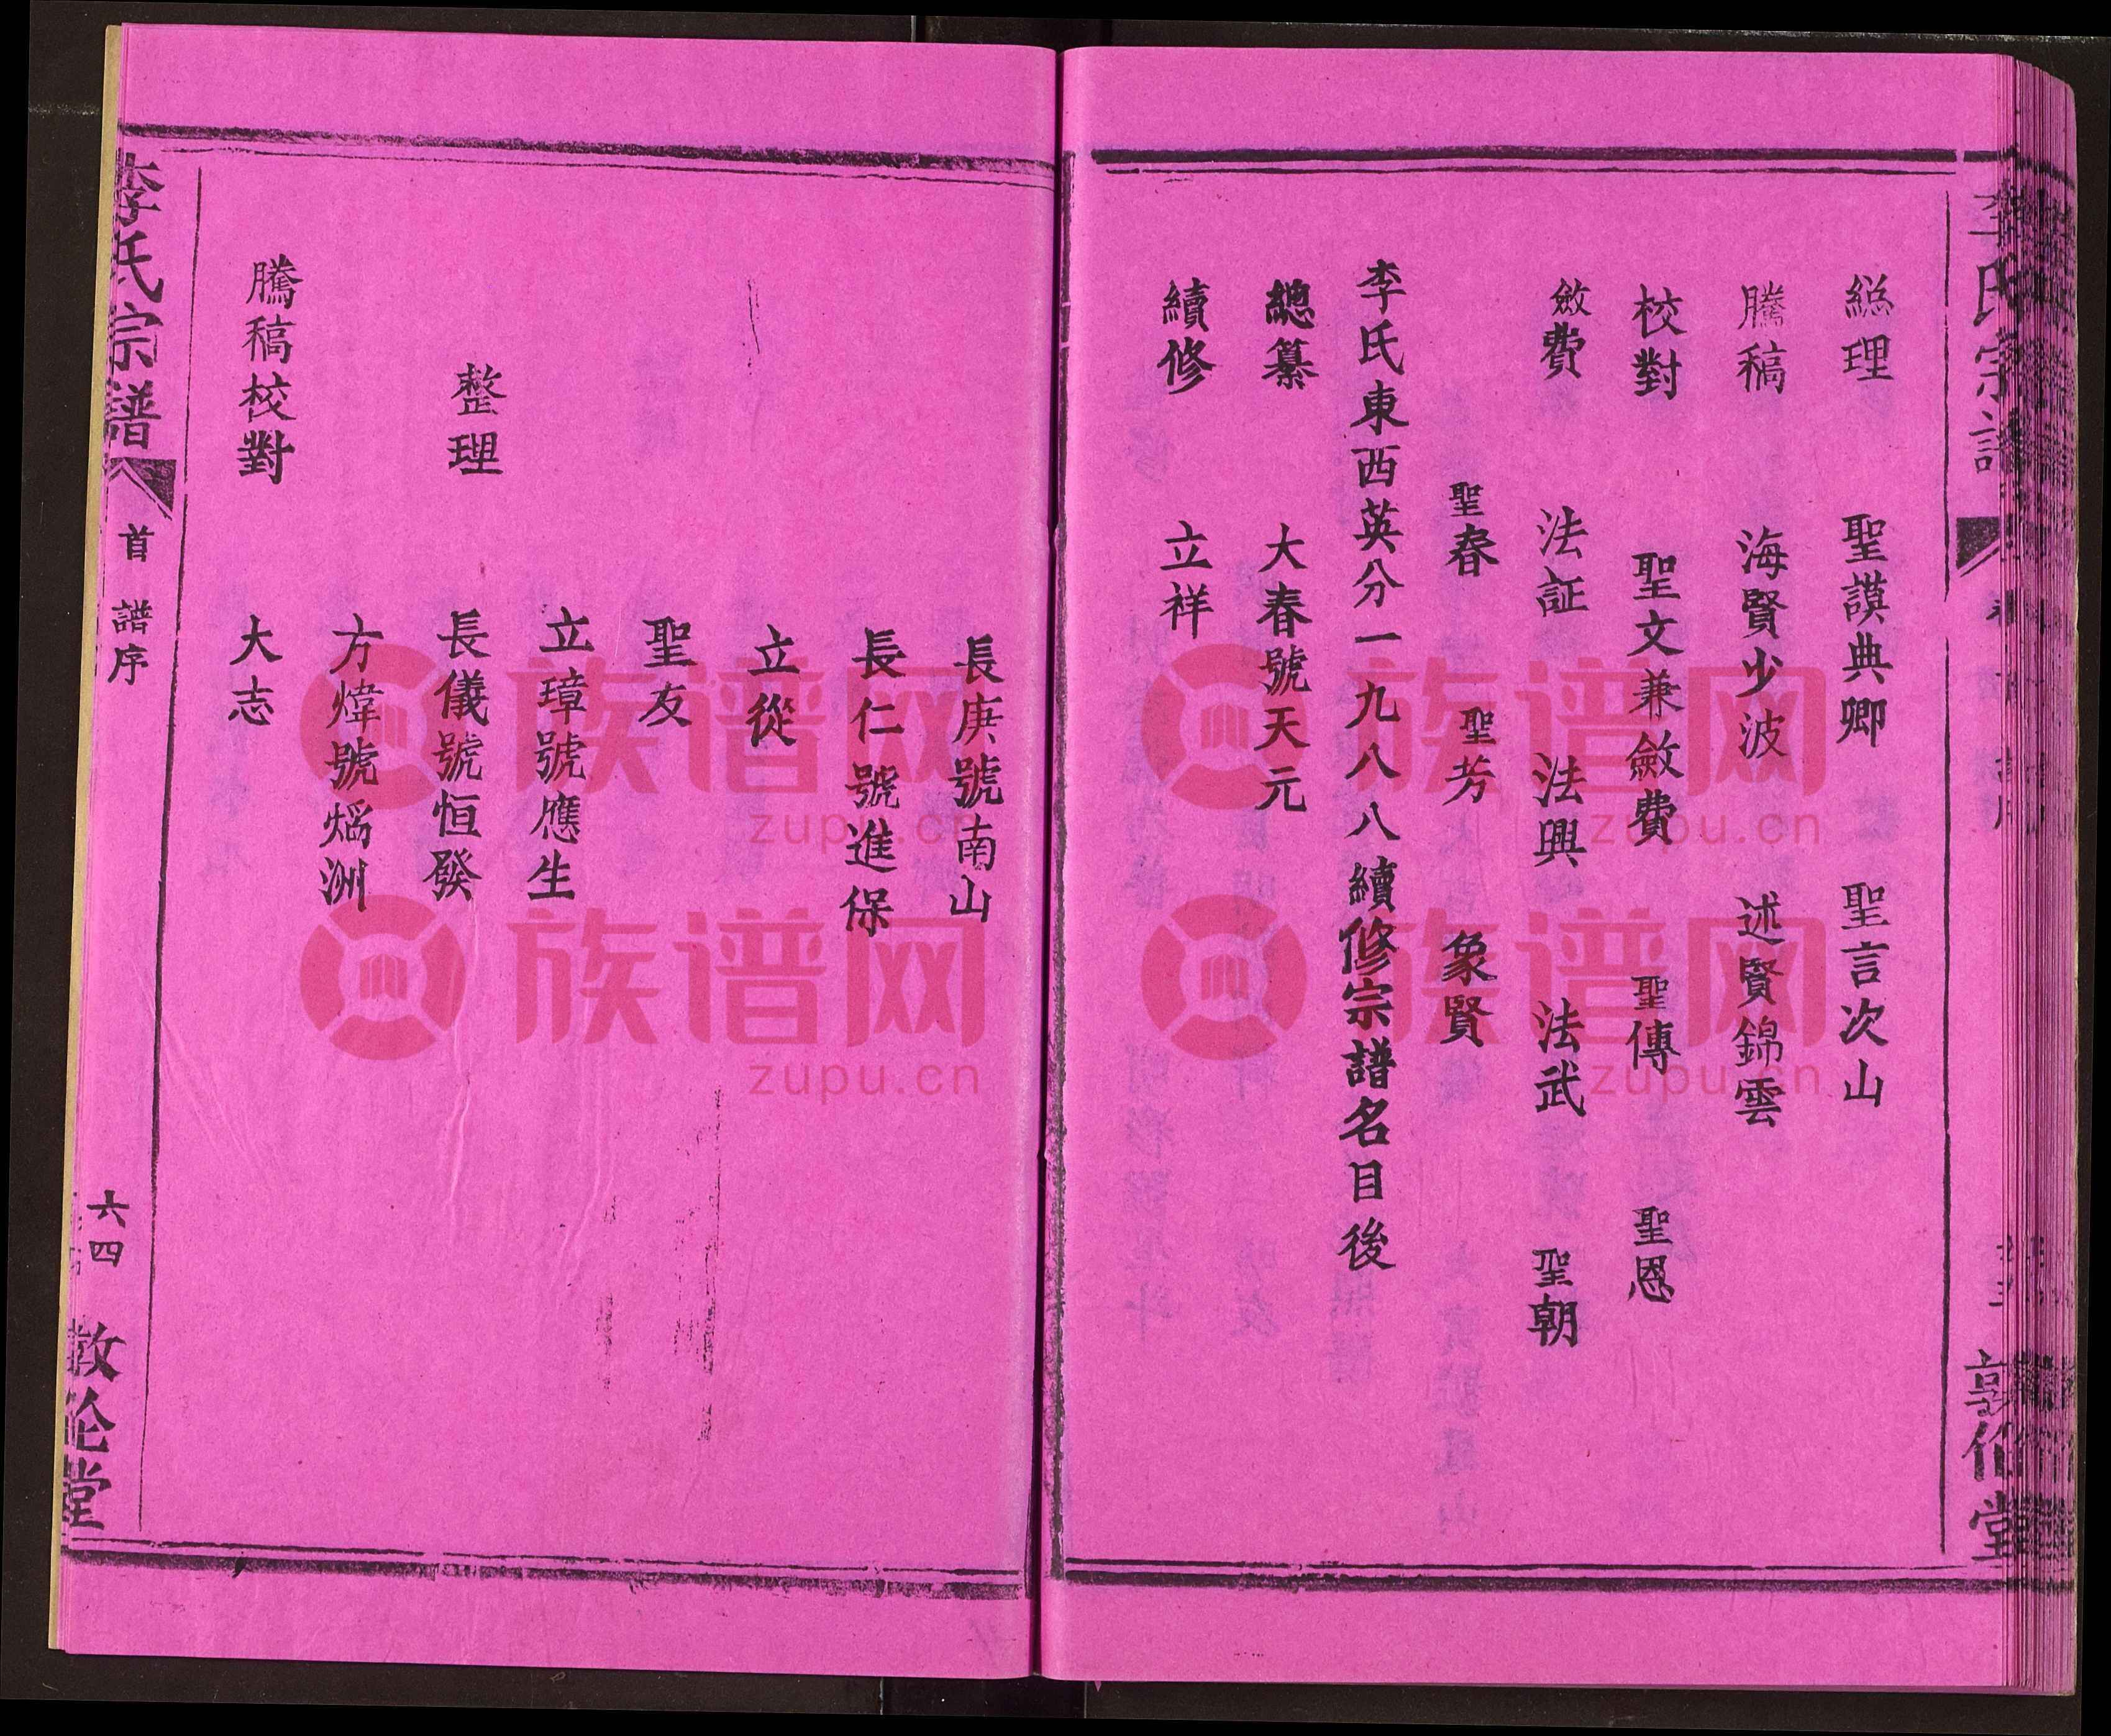 総理 聖謨典卿 聖言次山
騰稿 海賢少波 述賢錦雲
校對 聖文兼斂費 聖傳 聖恩
斂費 法証 法興 法武 聖朝
聖春 聖芳 象賢
李氏東西英分一九八八續修宗譜名目後
總纂 大春號天元
續修 立祥
長庚號南山
長仁號進保
立從
聖友
立璋號應生
整理 長儀號恒發
方煒號熖洲
騰稿校對 大志
李氏宗譜 首 譜序 六四 敦伦堂
族谱网
zupu.cn
族谱网
zupu.cn
族谱网
zupu.cn
族谱网
zupu.cn